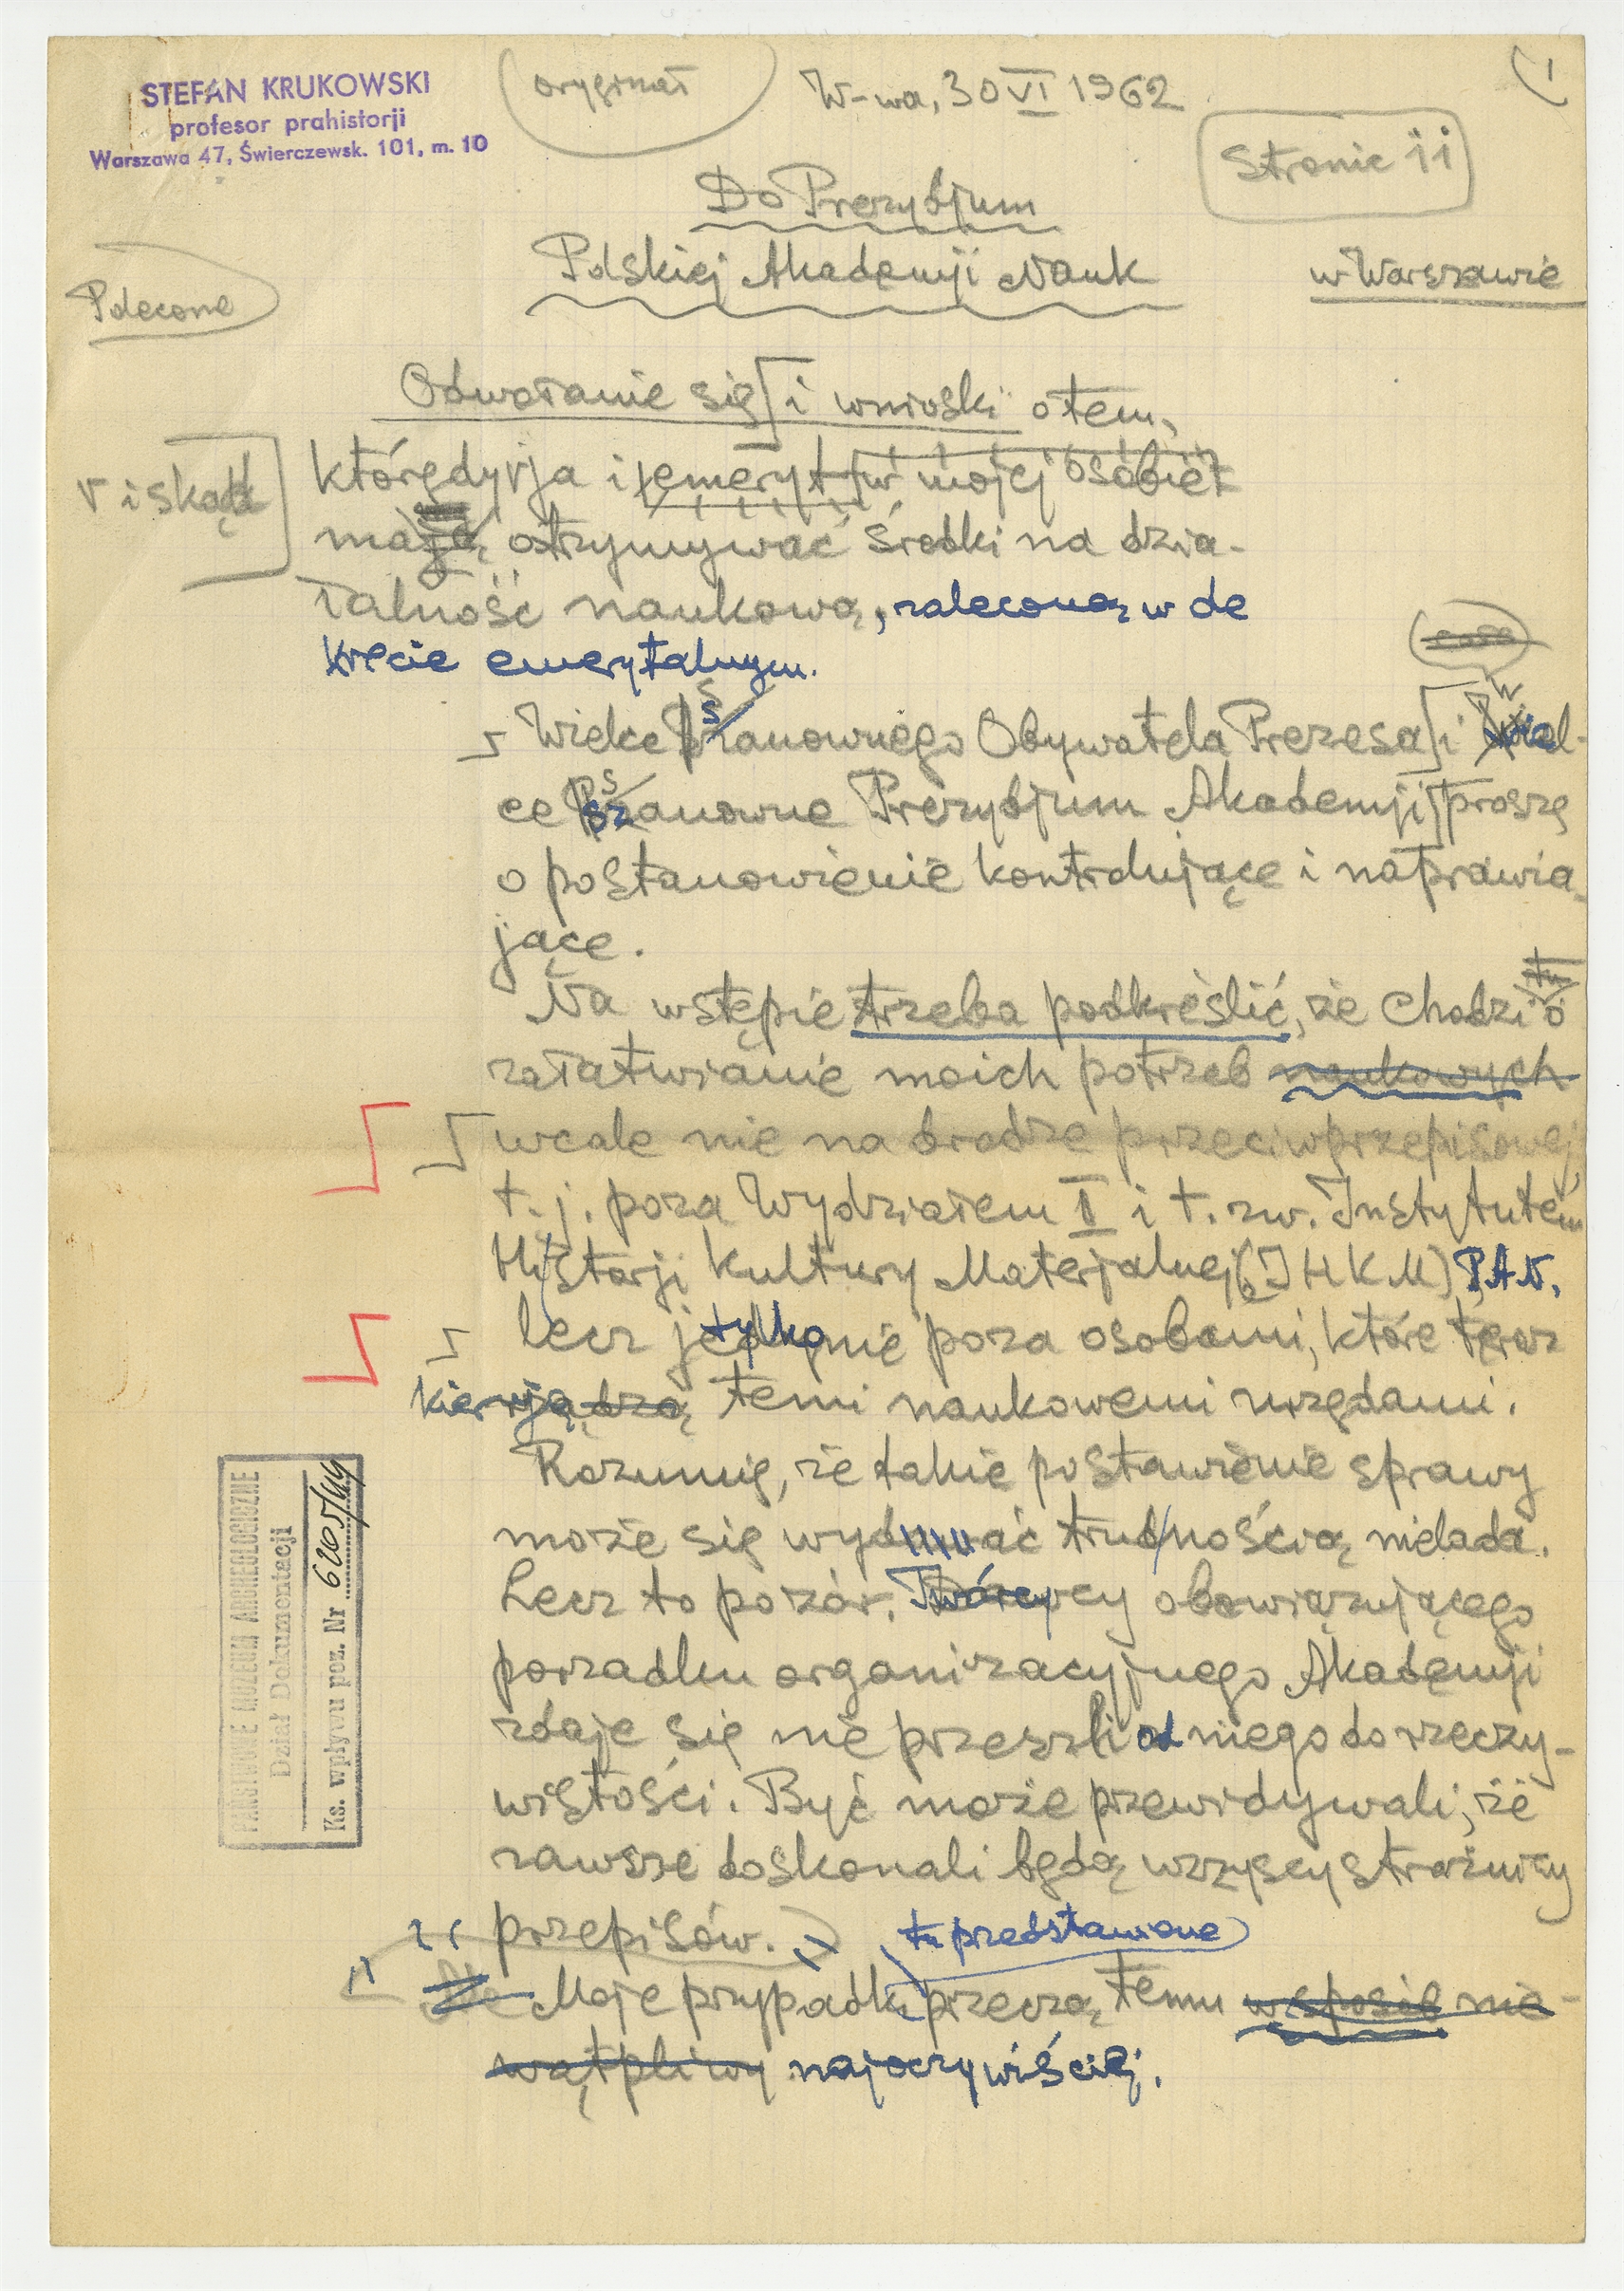 STEFAN KRUKOWSKI
profesor prahistorji
Warszawa 47, Świerczewsk. 101, m. 10
oryginał
W-wa, 30 VI 1962
1
Stronic 11
Do Prezydjum
Polskiej Akademji Nauk
w Warszawie
Polecone
Odwołanie się i wnioski o tem,
którędy ja i emeryt w mojej osobie
i skąd
mają otrzymywać środki na dzia-
łalność naukową, zaleconą w de
krecie emerytalnym.
Wielce Szanownego Obywatela Prezesa i Wiel-
ce Szanowne Prezydjum Akademji proszę
o postanowienie kontrolujące i naprawia-
jące.
Na wstępie trzeba podkreślić, że chodzi tu o
załatwianie moich potrzeb naukowych
wcale nie na drodze przeciwprzepisowej,
t. j. poza Wydziałem I i t. zw. Instytutem
Historji Kultury Materjalnej (IHKM) PAN,
lecz tylko poza osobami, które teraz
kierują temi naukowemi urzędami.
Rozumię, że takie postawienie sprawy
może się wydawać trudnością nielada.
Lecz to pozór. Twórcy obowiązującego
porządku organizacyjnego Akademji
zdaje się nie przeszli od niego do rzeczy-
wistości. Być może przewidywali, że
zawsze doskonali będą wszyscy strażnicy
przepisów.
tu przedstawione
Moje przypadki przeczą temu w sposób nie-
wątpliwy najoczywiściej.
PAŃSTWOWE MUZEUM ARCHEOLOGICZNE
Dział Dokumentacji
Ks. wpływu poz. Nr